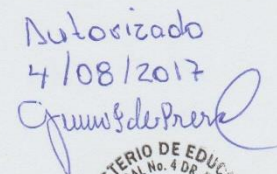 Autorizado
4/08/2017
TERIO DE EDUCA
AL No. 4 DR.